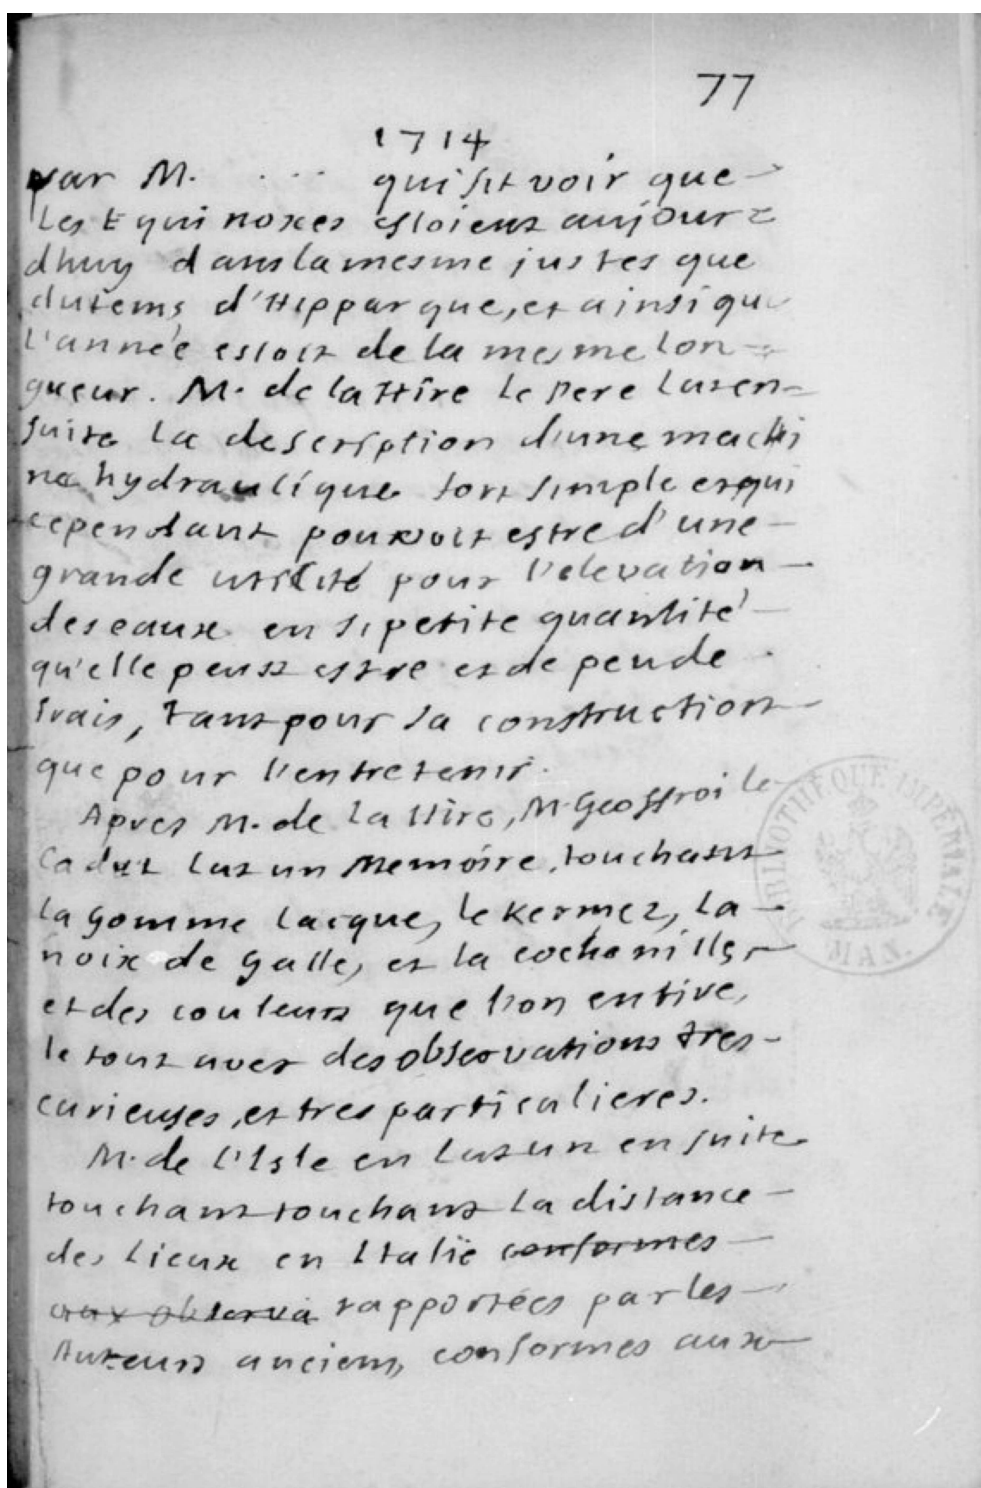 77
1714
par M. . . . qui fit voir que
les Equinoxes estoient aujour=
dhuy dans la mesme justes que
du tems d'Hipparque, et ainsi que
l'année estoit de la mesme lon=
gueur. M. de la Hire le Pere lut en=
suite la description d'une machi
ne hydraulique fort simple et qui
cependant pouvoit estre d'une
grande utilité pour l'elevation
des eaux en si petite quantité
qu'elle peust estre et de peu de
frais, tant pour sa construction
que pour l'entretenir.
Apres M. de la Hire, M. Geoffroi le
Cadet lut un Memoire, touchant
la Gomme lacque, le Kermez, la
noix de Galle, et la cochenille,
et des couleurs que l'on en tire,
le tout avec des observations tres-
curieuses, et tres particulieres.
M. de l'Isle en lut un en suite
touchant touchant la distance
des lieux en Italie conformes
aux observa rapportées par les
Auteurs anciens, conformes aux
BIBLIOTHÈQUE IMPÉRIALE
MAN.